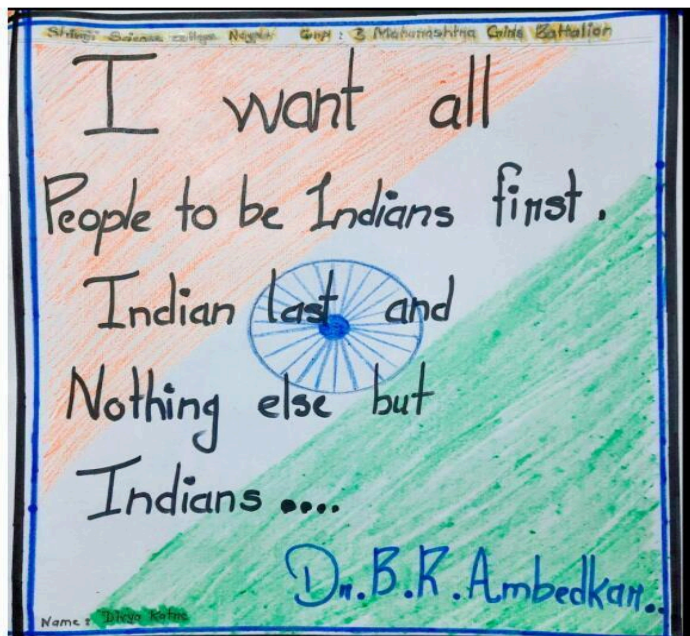 Shivaji Science college Nagpur Group : 3 Maharashtra Girls Battalion
I want all
People to be Indians first.
Indian last and
Nothing else but
Indians ....
Dr.B.R.Ambedkar..
Name : Divya